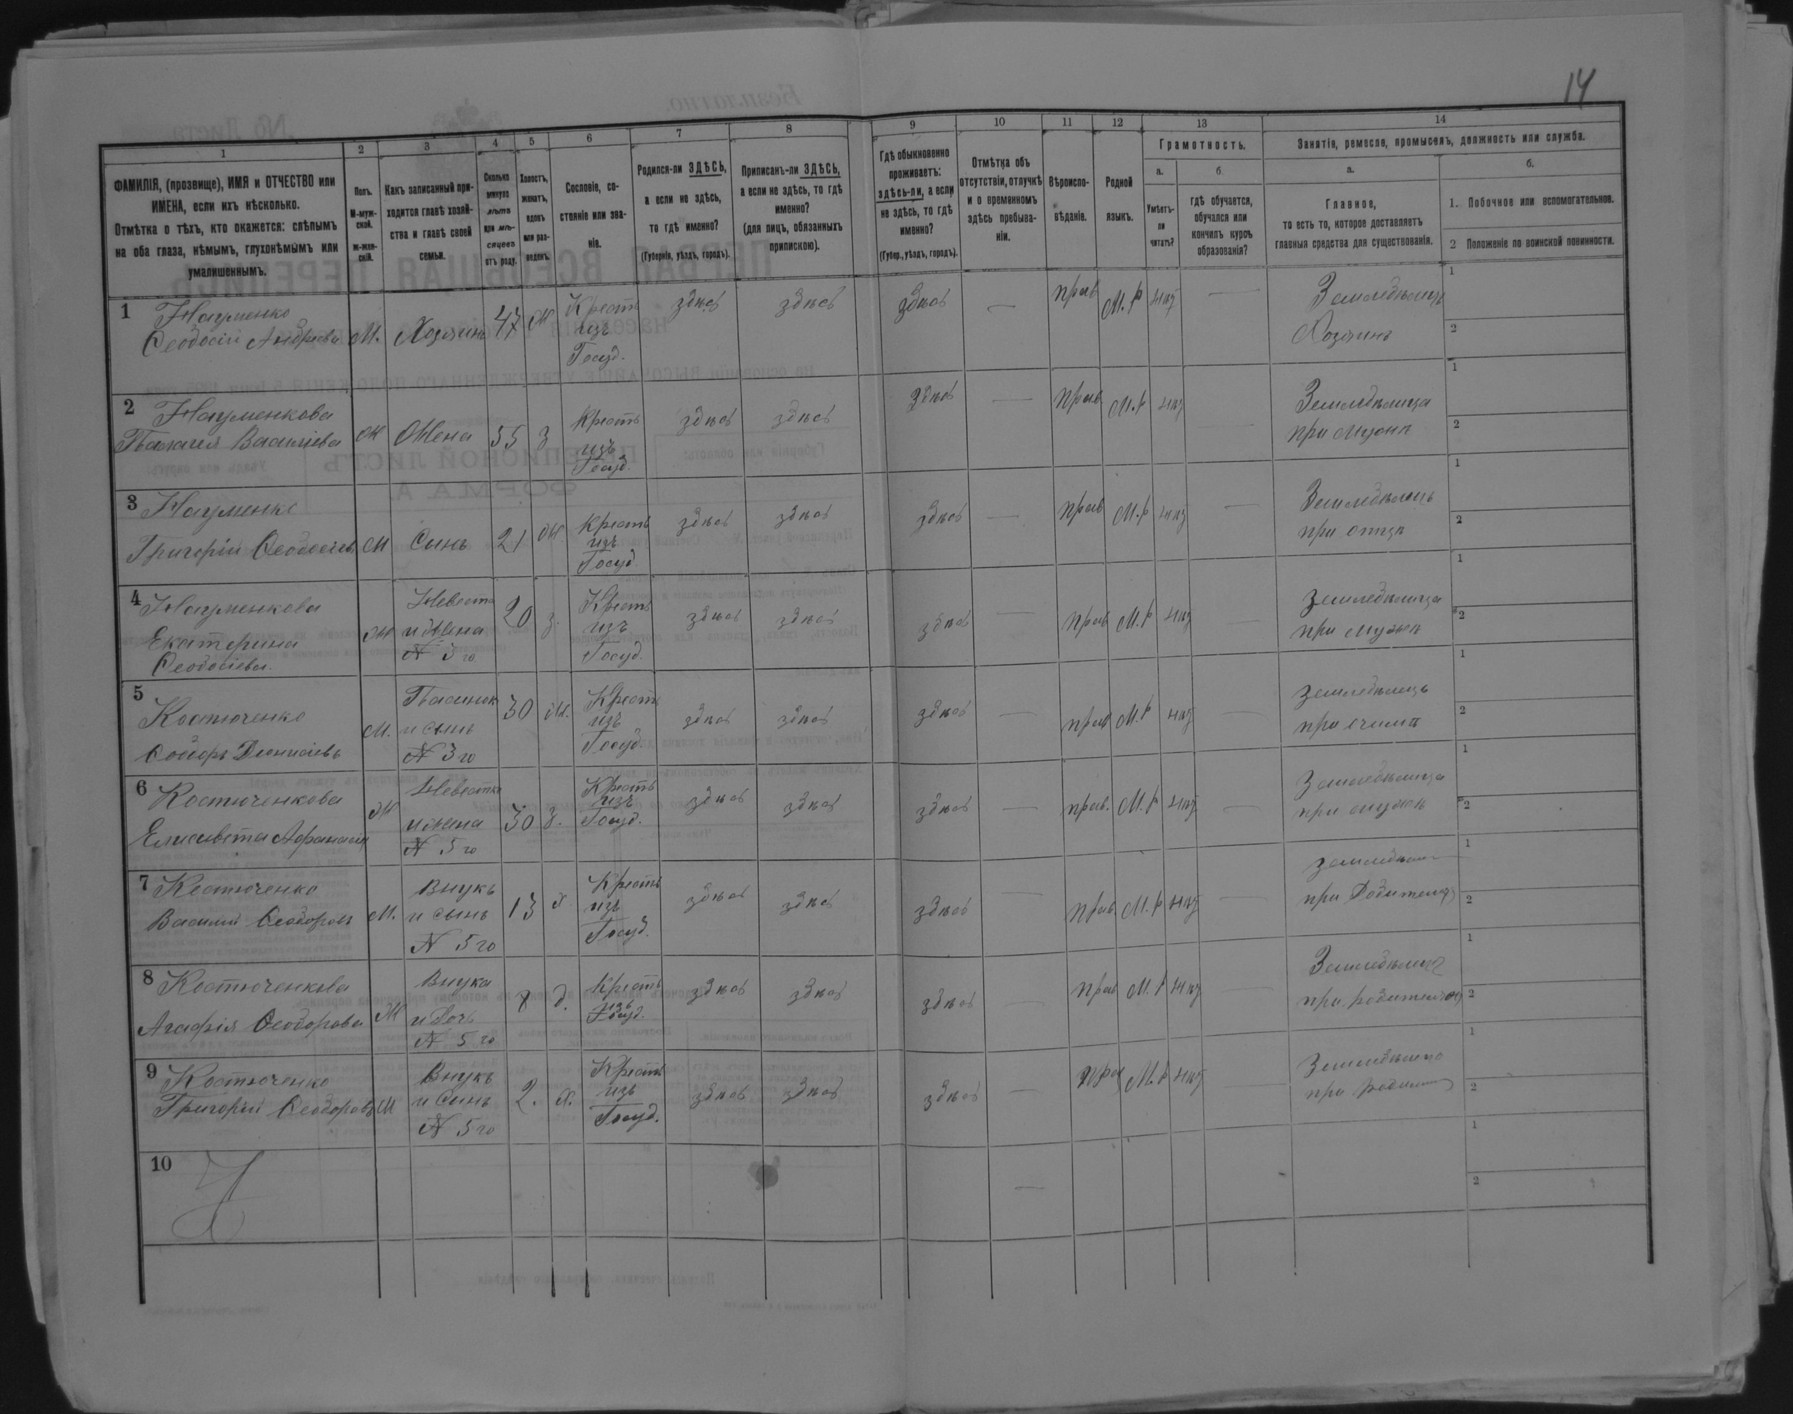 14
1
2
3
4
5
6
7
8
9
10
11
12
13
14
ФАМИЛІЯ, (прозвище), ИМЯ и ОТЧЕСТВО или
ИМЕНА, если ихъ нѣсколько.
Отмѣтка о тѣхъ, кто окажется: слѣпымъ
на оба глаза, нѣмымъ, глухонѣмымъ или
умалишеннымъ.
Полъ.
М-муж-
ской.
ж-жен-
скій.
Какъ записанный при-
ходится главѣ хозяй-
ства и главѣ своей
семьи.
Сколько
минуло
лѣтъ
или мѣ-
сяцевъ
отъ роду.
Холостъ,
женатъ,
вдовъ
или раз-
веденъ.
Сословіе, со-
стояніе или зва-
ніе.
Родился-ли ЗДѢСЬ,
а если не здѣсь,
то гдѣ именно?
(Губернія, уѣздъ, городъ).
Приписанъ-ли ЗДѢСЬ,
а если не здѣсь, то гдѣ
именно?
(для лицъ, обязанныхъ
припискою).
Гдѣ обыкновенно
проживаетъ:
здѣсь-ли, а если
не здѣсь, то гдѣ
именно?
(Губер., уѣздъ, городъ).
Отмѣтка объ
отсутствіи, отлучкѣ
и о временномъ
здѣсь пребыва-
ніи.
Вѣроиспо-
вѣданіе.
Родной
языкъ.
Грамотность.
а.
Умѣетъ-
ли
читать?
б.
гдѣ обучается,
обучался или
кончилъ курсъ
образованія?
Занятія, ремесло, промыселъ, должность или служба.
а.
Главное,
то есть то, которое доставляетъ
главныя средства для существованія.
б.
1. Побочное или вспомогательное.
2 Положеніе по воинской повинности.
1 Науменко
Ѳеодосій Андреевъ М. Хозяинъ 47 ж Крест. изъ Госуд. здѣсь здѣсь здѣсь — прав М.р нѣт — Земледѣлецъ Хозяинъ 1 2
2 Науменкова
Пелагея Васильева ж Жена 55 з Крест изъ Госуд. здѣсь здѣсь здѣсь — прав М.р нѣт Земледѣлица при мужѣ 1 2
3 Науменко
Григорій Ѳеодосіевъ М Сынъ 21 ж. Крест изъ Госуд здѣсь здѣсь здѣсь — прав М.р нѣт Земледѣлецъ при отцѣ 1 2
4 Науменкова
Екатерина
Ѳеодосіева ж Невестка и жена N 3го 20 з. Крест изъ Госуд. здѣсь здѣсь здѣсь — прав М.р нѣт земледѣлица при мужѣ 1 2
5 Костюченко
Ѳедоръ Денисіевъ М. Пасынок и сынъ N 3го 30 ж. Крест изъ Госуд. здѣсь здѣсь здѣсь — прав М.р нѣт земледѣлецъ при отчимѣ 1 2
6 Костюченкова
Елисавета ж Невестка и жена N 5го 30 з. Крест изъ Госуд. здѣсь здѣсь здѣсь — прав. М.р нѣт Земледѣлица при мужѣ 1 2
7 Костюченко
Василій Ѳеодоровъ М. Внукъ и сынъ N 5го 13 Крест изъ Госуд. здѣсь здѣсь здѣсь — прав М.р нѣт — при Родителях 1 2
8 Костюченкова
Агафія Ѳеодорова ж Внука и Дочь N 5го 8 д. Крест изъ Госуд. здѣсь здѣсь здѣсь — прав М.р нѣт при родителях 1 2
9 Костюченко
Григорій Ѳеодоровъ М Внукъ и Сынъ N 5го 2. х. Крест изъ Госуд. здѣсь здѣсь здѣсь — прав М.р нѣт при 1 2
10 — 1 2